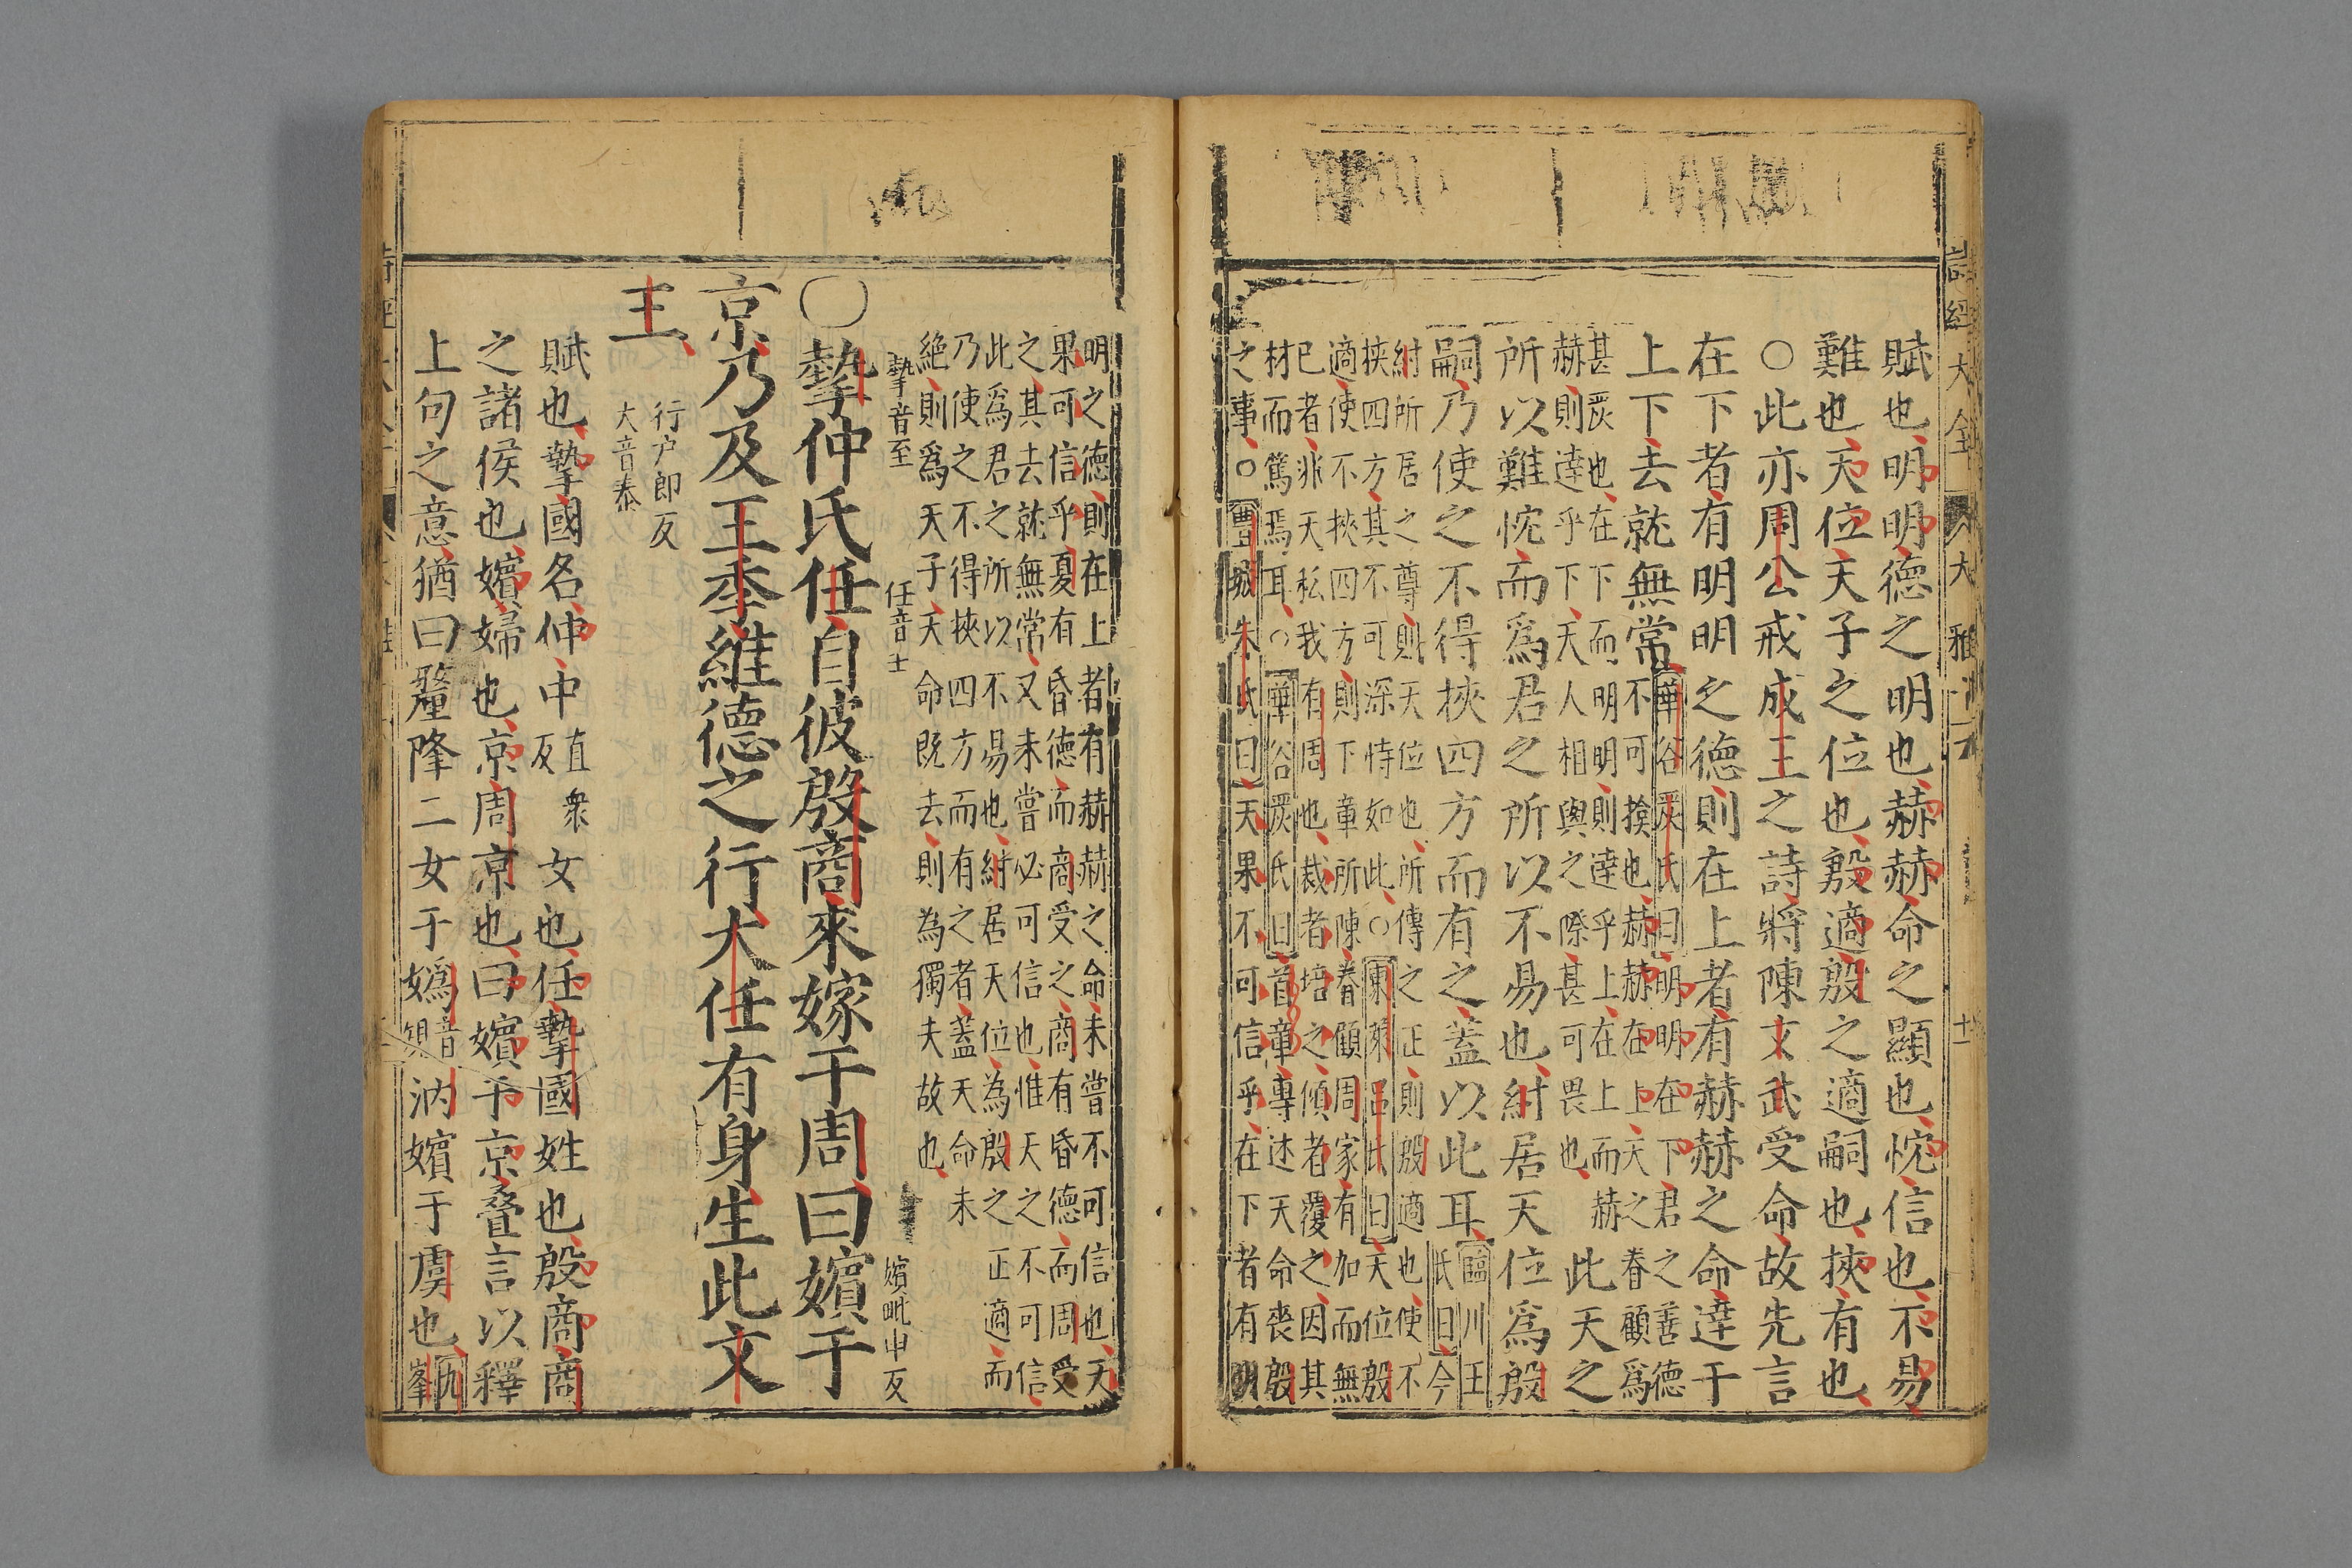 詩經大全
大雅
賦也明明德之明也赫赫命之顯也忱信也不易
難也天位天子之位也殷適殷之適嗣也挾有也
○此亦周公戒成王之詩將陳文武受命故先言
在下者有明明之德則在上者有赫赫之命達于
上下去就無常
華谷嚴氏曰明明在下君之善德
不可揜也赫赫在上天之眷顧爲
甚嚴也在下而明明則達乎上在上而赫
赫則達乎下天人相與之際甚可畏也
此天之
所以難忱而爲君之所以不易也紂居天位爲殷
嗣乃使之不得挾四方而有之蓋以此耳
臨川王
氏曰今
紂所居之尊則天位也所傳之正則殷適也使不
挾四方其不可深恃如此○東萊呂氏曰天位殷
適使不挾四方則下章所陳眷顧周家有加而無
已者非天私我有周也栽者培之傾者覆之因其
材而篤焉耳○華谷嚴氏曰首章專述天命喪殷
之事○豐城朱氏曰天果不可信乎在下者有明
明之德則在上者有赫赫之命未嘗不可信也天
果可信乎夏有昏德而商受之商有昏德而周受
之其去就無常又未嘗必可信也惟天之不可信
此爲君之所以不易也紂居天位為殷之正適而
乃使之不得挾四方而有之者蓋天命未
絕則爲天子天命既去則為獨夫故也
摯音至
任音士
嬪毗申反
○摯仲氏任自彼殷商來嫁于周曰嬪于
京乃及王季維德之行大任有身生此文
王
行户郎反
大音泰
賦也摯國名仲中
直衆
反
女也任摯國姓也殷商商
之諸侯也嬪婦也京周京也曰嬪于京疊言以釋
上句之意猶曰釐降二女于媯
音
䂓
汭嬪于虞也
九
峯